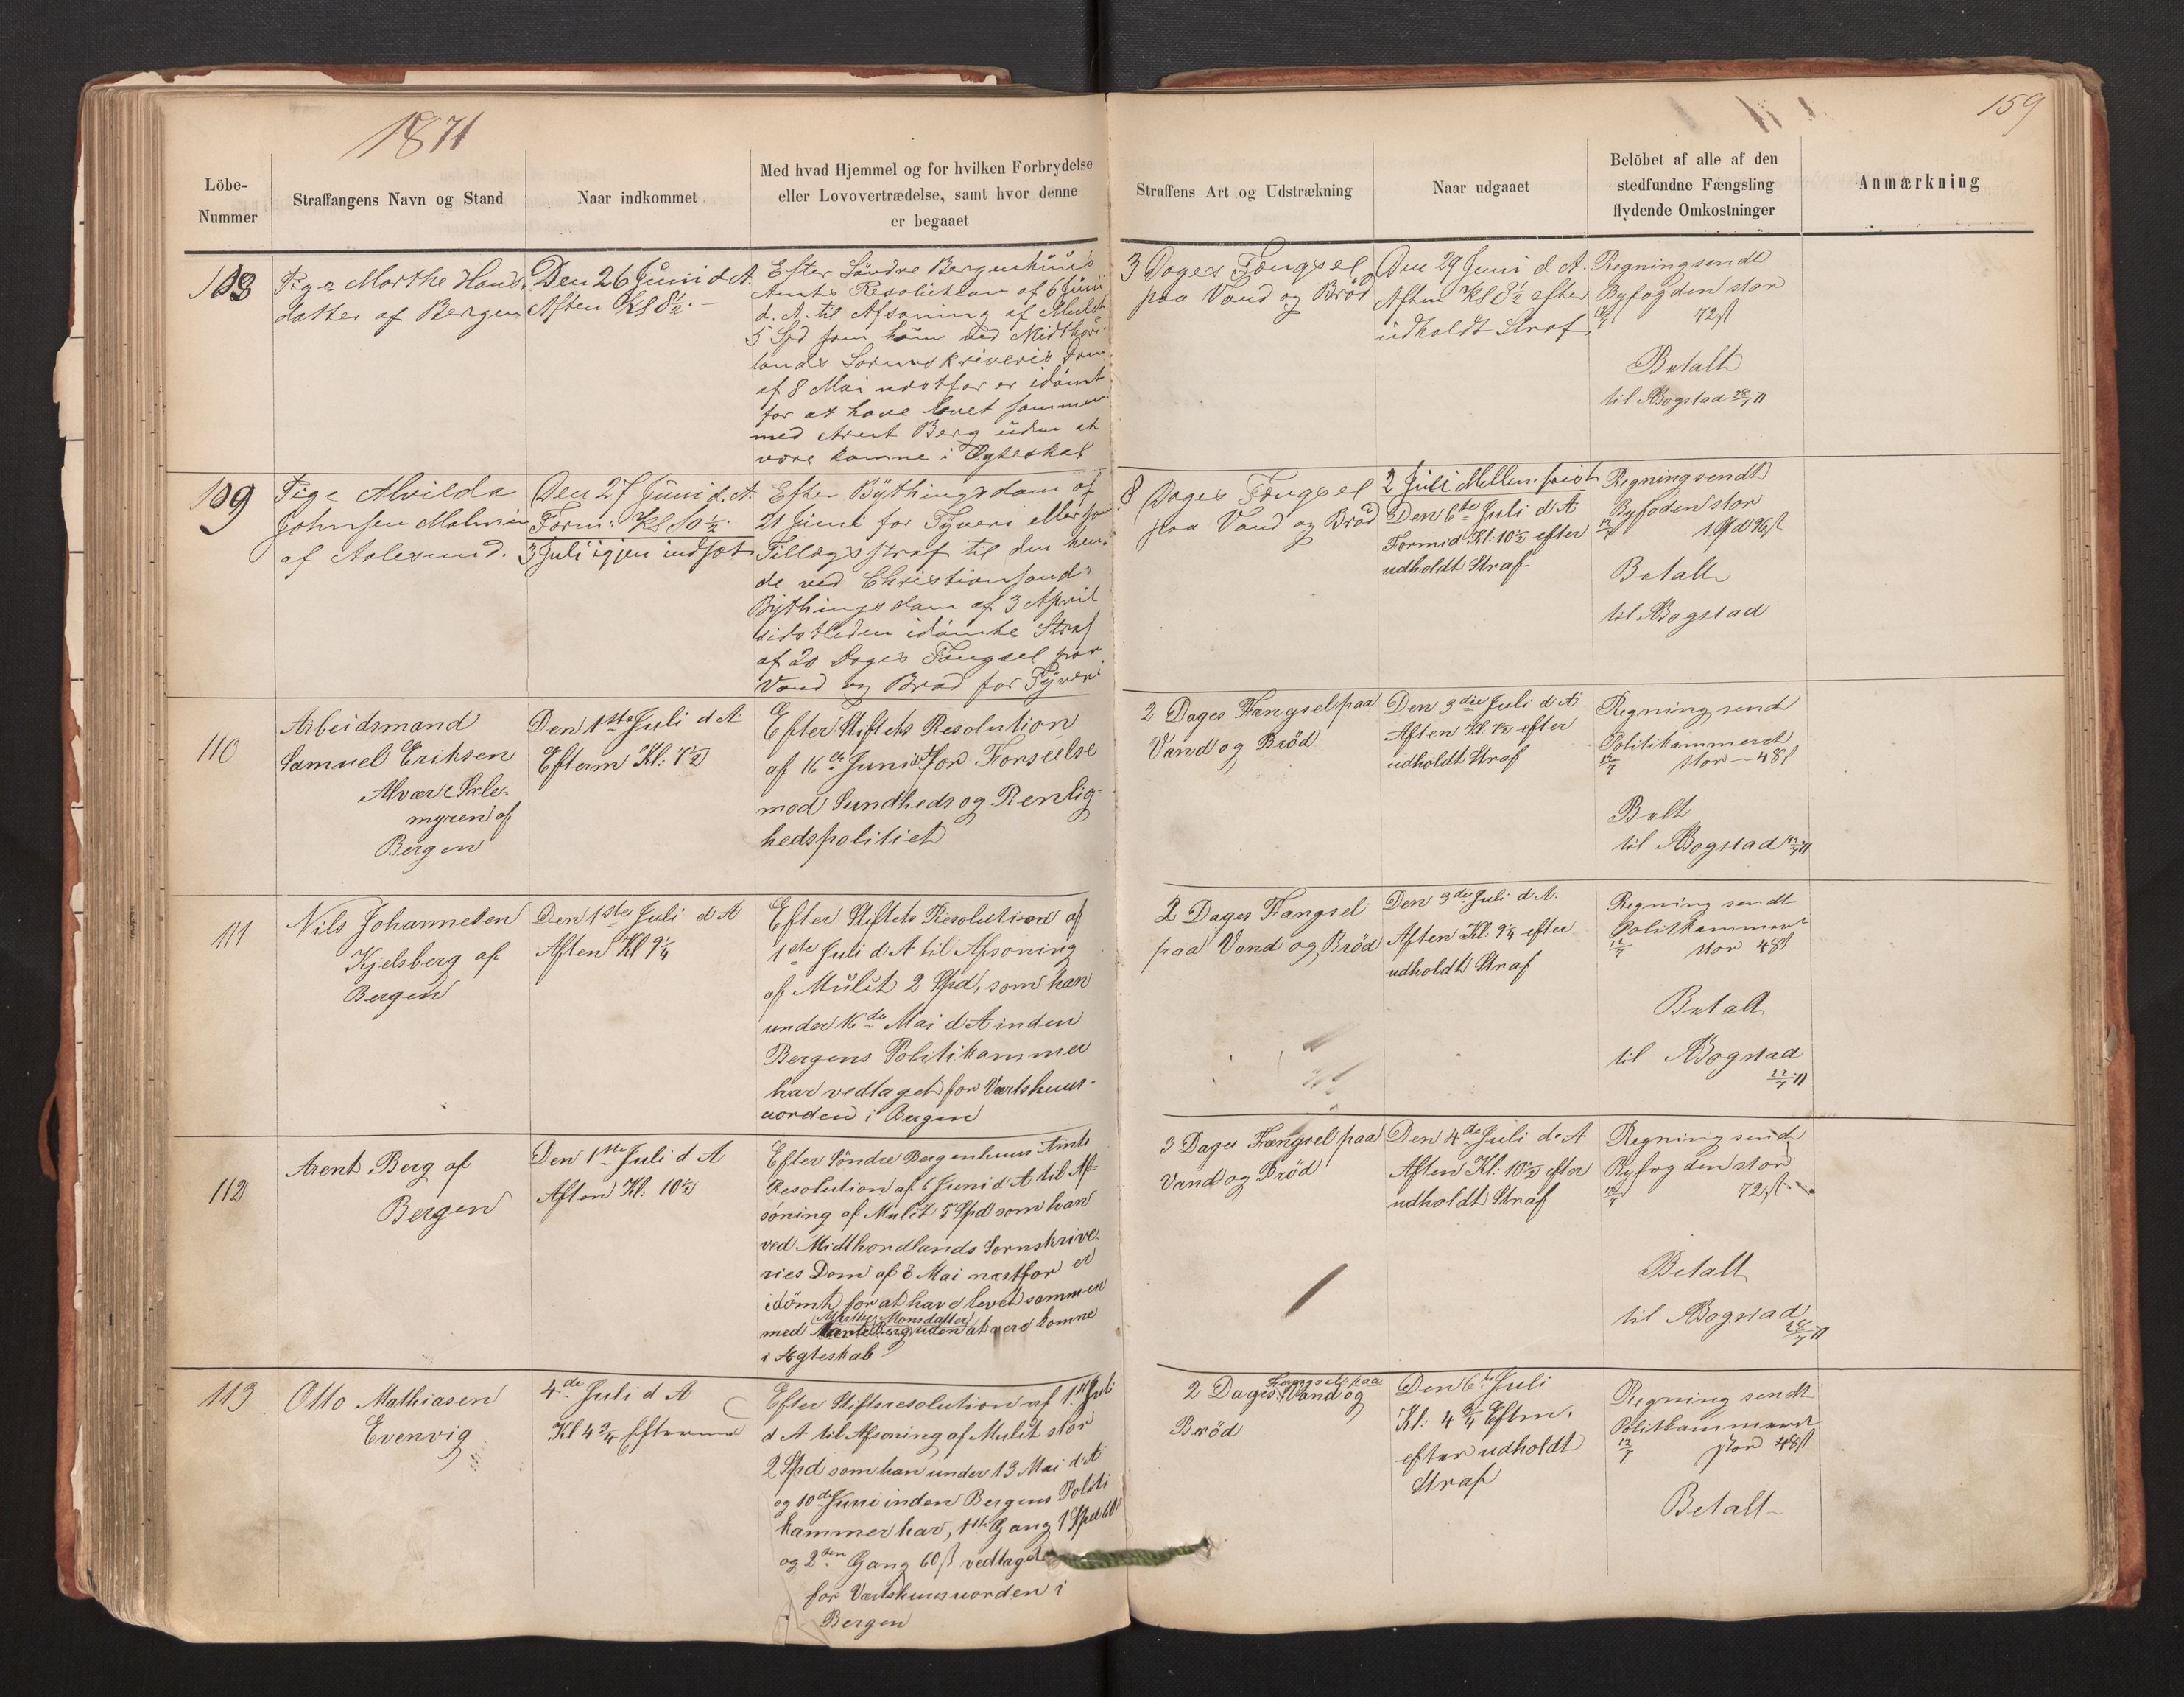 1871
159
Löbe-
Nummer
Straffangens Navn og Stand
Naar indkommet
Med hvad Hjemmel og for hvilken Forbrydelse
eller Lovovertrædelse, samt hvor denne
er begaaet
Straffens Art og Udstrækning
Naar udgaaet
Belöbet af alle af den
stedfundne Fængsling
flydende Omkostninger
Anmærkning
108
Pige Marthe Hans-
datter af Bergen
Den 26 Juni d. A.
Aften Kl 8½.
Efter Söndre Bergenhuus
Amts Resolution af 6 Juni
d. A. til Afsoning af Mulct
5 Spd som hun ved Midthord-
lands Sorenskriveries Dom
af 8 Mai næstfor er idömt
for at have levet sammen
med Arent Berg uden at
være komne i Ægteskab
3 Dages Fængsel
paa Vand og Bröd
Den 29 Juni d. A.
Aften Kl 8½ efter
udholdt Straf
Regning sendt
Byfogden stor
72 ß
Betalt
til Bogstad 28/7 71
109
Pige Alvilda
Johnsen Malmin
af Aalesund.
Den 27 Juni d. A.
Form: Kl 10½.
3 Juli igjen indsat
Efter Bythingsdom af
21 Juni for Tyveri eller som
Tillægsstraf til den hen-
de ved Christiansands
Bythingsdom af 3 April
sidstleden idömte Straf
af 20 Dages Fængsel paa
Vand og Bröd for Tyveri
8 Dages Fængsel
paa Vand og Bröd
2 Juli Mellemfrist
Den 6te Juli d A
Formid Kl: 10½ efter
udholdt Straf
Regning sendt
Byfoden stor
12/7 1 Spd 96 ß
Betalt
til Bogstad
110
Arbeidsmand
Samuel Eriksen
Alvær Sale-
myren af
Bergen
Den 1ste Juli d A
Efterm Kl: 7½
Efter Stiftets Resolution
af 16de Juni for Forseelse
mod Sundheds og Renlig-
hedspolitiet
2 Dages Fængsel paa
Vand og Bröd
Den 3die Juli d A
Aften Kl. 7½ efter
udholdt Straf
Regning sendt
Politikammeret
12/7 stor — 48 ß
Balt
til Bogstad 22/7 71
111
Nils Johannesen
Kjelsberg af
Bergen
Den 1ste Juli d A
Aften Kl 9¼
Efter Stiftets Resolution af
1ste Juli d A til Afsoning
af Mulct 2 Spd, som han
under 16de Mai d A inden
Bergens Politikammer
har vedtaget for Værtshuus-
uorden i Bergen
2 Dages Fængsel
paa Vand og Bröd
Den 3die Juli d A.
Aften Kl: 9¼ efter
udholdt Straf
Regning sendt
Politkammeret
12/7 stor 48 ß
Betalt
til Bogstad
22/7 71
112
Arent Berg af
Bergen
Den 1ste Juli d A
Aften Kl: 10½
Efter Söndre Bergenhuus Amts
Resolution af 6 Juni d A til Af-
söning af Mulct 5 Spd som han
ved Midthordlands Sornskrive-
ries Dom af 8 Mai næstfor er
idömt for at have levet sammen
Marthe Monsdatter
med uden at være komne
i Ægteskab
3 Dages Fængsel paa
Vand og Bröd
Den 4de Juli d. A
Aften Kl: 10½ efter
udholdt Straf
Regning sendt
Byfogden stor
12/7 72 ß.
Betalt
til Bogstad
28/7 71
113
Otto Mathiasen
Evenvig
4de Juli d A
Kl 4¾ Efterm
Efter Stiftsresolution af 1ste Juli
d A til Afsoning af Mulct stor
2 Spd som han under 13 Mai d A
og 10de Juni inden Bergens Politi
kammer har, 1ste Gang 1 Spd 60 ß
og 2den Gang 60 ß vedtaget
for Værtshuusuorden i
Bergen
Fængsel paa
2 Dages Vand og
Bröd
Den 6te Juli
Kl: 4¾ Eftm.
efter udholdt
Straf
Regning sendt
Politkammeret
12/7 stor 48 ß
Betalt